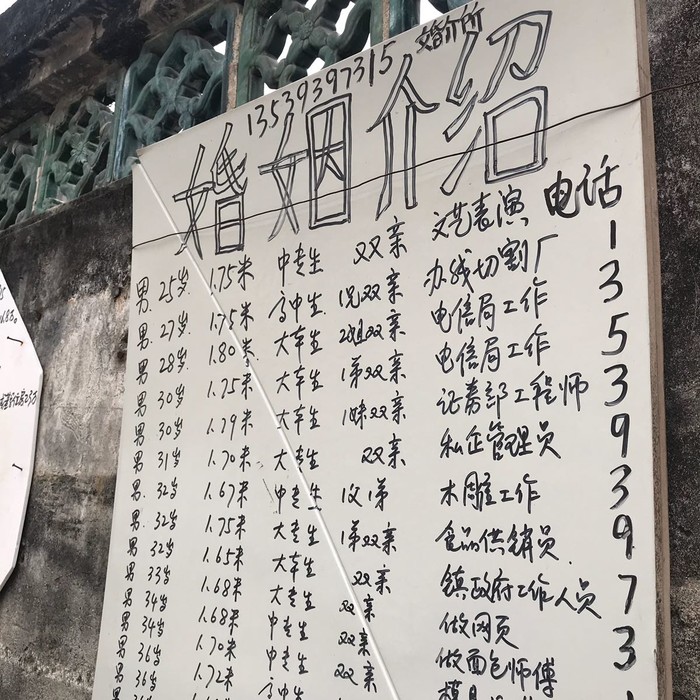 13539397315 婚介所
婚姻介绍
电话
1
3
5
3
9
3
9
7
3
男 25岁 1.75米 中专生 双亲 文艺表演
男 27岁 1.75米 高中生 1兄双亲 办线切割厂
男 28岁 1.80米 大本生 2姐双亲 电信局工作
男 30岁 1.75米 大本生 1弟双亲 电信局工作
男 30岁 1.79米 大本生 1妹双亲 证券部工程师
男 31岁 1.70米 大专生 双亲 私企管理员
男 32岁 1.67米 中专生 弟 木雕工作
男 32岁 1.75米 大专生 1弟双亲 食品供销员
男 33岁 1.65米 大本生 双亲 镇政府工作人员
男 34岁 1.68米 大专生 双亲 做网页
男 34岁 1.68米 中专生 双亲 做面包师傅
男 36岁 1.70米 中专生 双亲
男 36岁 1.72米 高中生